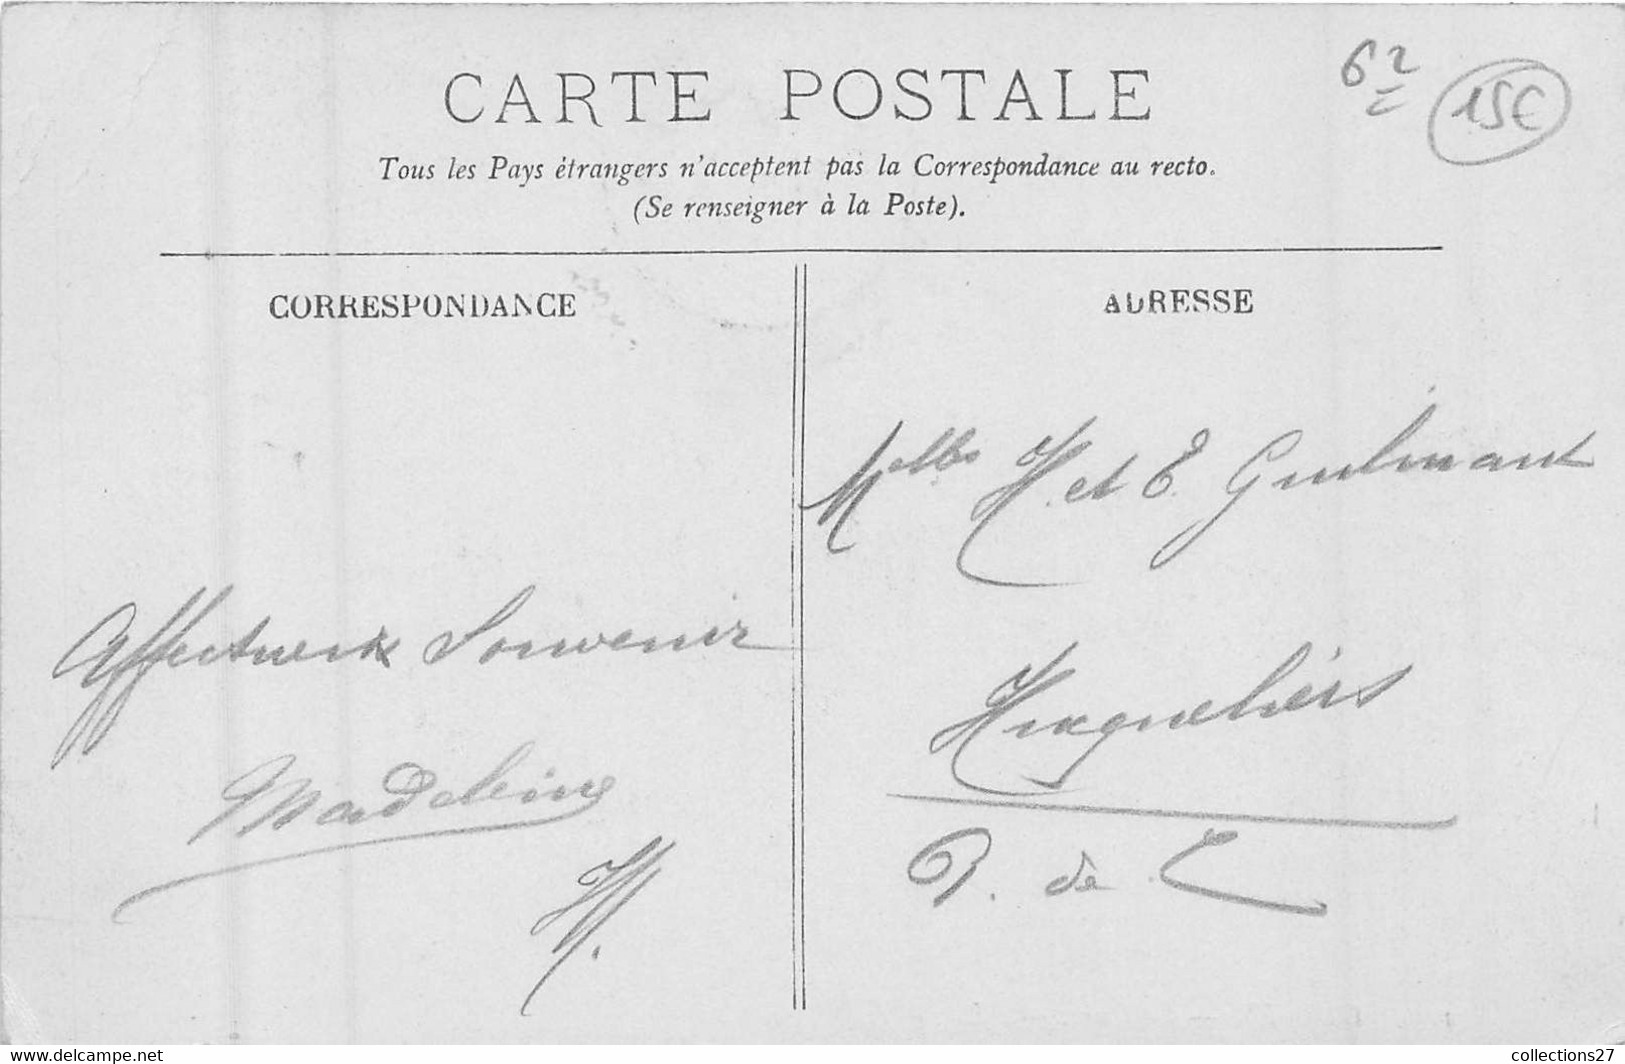 CARTE POSTALE
62
15€
Tous les Pays étrangers n'acceptent pas la Correspondance au recto.
(Se renseigner à la Poste).
CORRESPONDANCE
ADRESSE
Melles H. et E. Guilmant
Affectueux Souvenir
Hucqueliers
Madeleine
H.
P. de C
www.delcampe.net
collections27